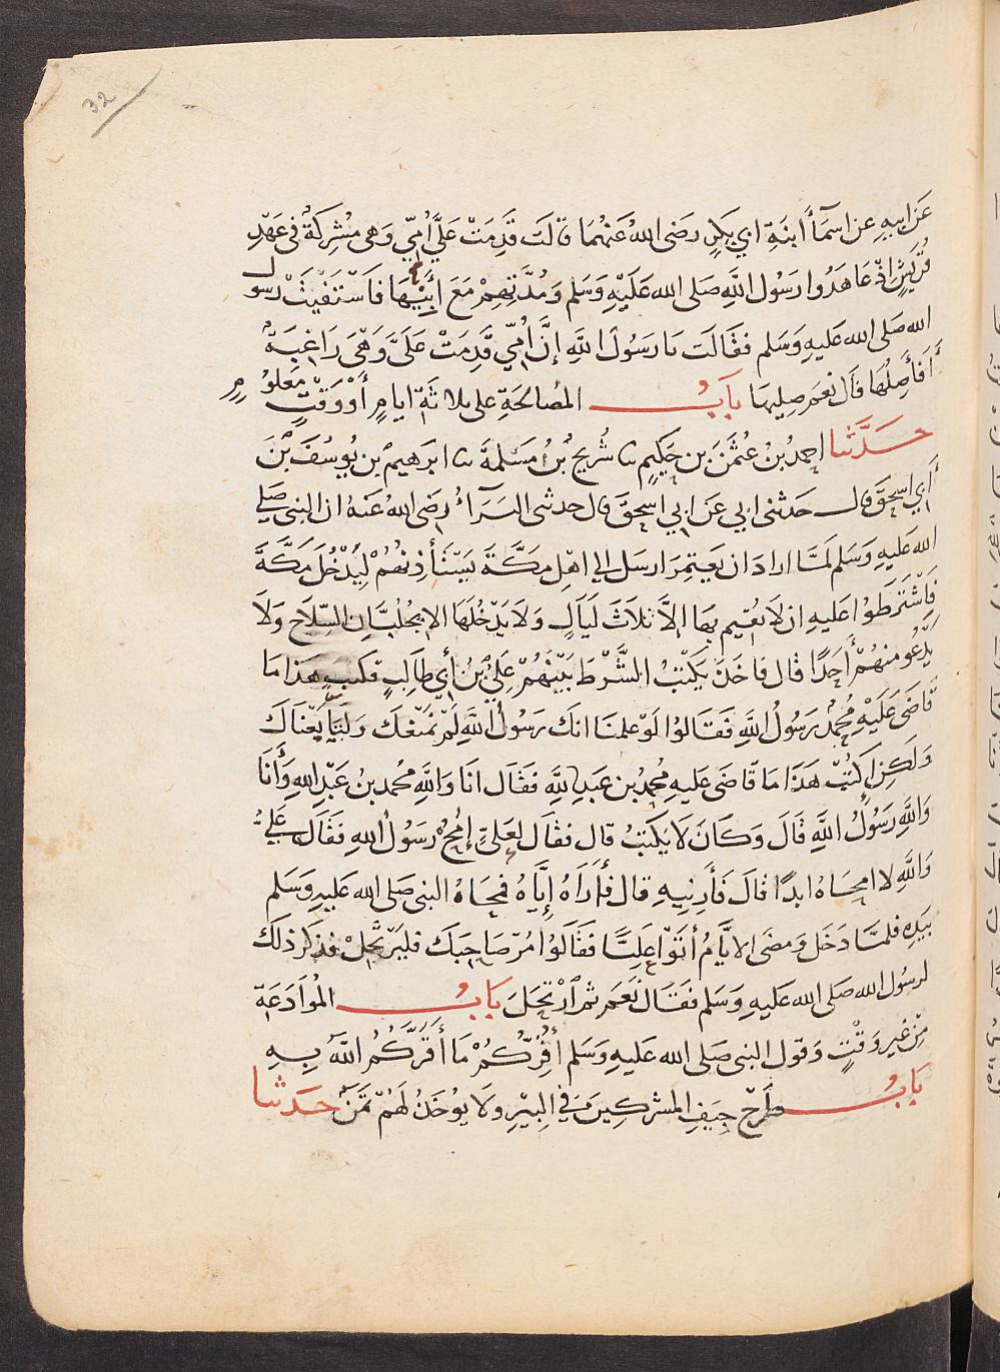 32
عَنْ ابيهِ عن اسمَآءَ ابنَةِ ابي بَكرٍ رَضى اللهُ عَنهُمَا قالَت قَدِمَتْ عَلَيَّ اُمِّي وَهى مُشرِكَةٌ فى عَهْدِ
قُرَيْشٍ اِذْ عَاهَدُوا رَسُول اللهِ صَلى الله عَلَيْهِ وَسَلم وَمُدَّتِهِمْ مَعَ اَبِيْهَا فَاسْتَفْتَتْ رسول
الله صَلى الله عَليهِ وَسَلم فقَالَت يَا رَسُولَ اللهِ إنَّ اُمِّي قَدِمَتْ عَلَىَّ وَهْىَ رَاغِبَةٌ
أَفَأَصِلُهَا قَال نعَمر صِليهَا بَابُ المُصالحَةِ على ثلاثَةِ ايامٍ أَوْ وَقْتٍ مَعلُومٍ
حَدَّثنا احمدُ بنُ عُثمٰنَ بن حَكِيمٍ ثنا شُرَيح بْنُ مَسْلَمَةَ ثنا ابرَهيمُ بن يُوسُفَ بْنَ
أَبِي اسحٰقَ قال حَدثنى ابي عَن ابي اسحٰقَ قال حدثنى البَرَآءُ رَضى اللهُ عَنهُ ان النبىَ صَلى
الله عَليهِ وَسَلم لَمَّا ارادَ ان يَعتَمِرَ ارسَل الى اهْلِ مَكَّةَ يَسْتَأذِنُهُمْ لِيَدْخُلَ مَكَّةَ
فَاشْتَرَطُوا عَليهِ ان لَا يُقيم بهَا الَّا ثلَاثَ لَيَالٍ وَلَا يَدْخُلَهَا الا بجُلُبَّانِ السِّلَاحِ وَلَا
يَدْعُو منهُمْ أَحَدًا قال فاخَذَ يَكْتُبُ الشَّرْطَ بَيْنَهُمْ عَلِيُّ بْنُ أَبي طَالِبٍ فكتب هَذا مَا
قاضَى عَلَيْهِ مُحمدٌ رَسُولُ اللهِ فَقَالُوا لَوْ عَلمنَا انكَ رَسُولُ اللهِ لَمْ نَمْنعْكَ وَلَبَايَعْنَاكَ
وَلٰكِنِ اكتُبْ هَذَا مَا قَاضَى عَليهِ مُحمدُ بن عَبدِ اللهِ فقَال انَا وَاللهِ مُحمد بنُ عَبْدِ اللهِ وَأَنَا
وَاللهِ رَسُولُ اللهِ قَالَ وَكَانَ لَا يَكتُبُ قال فقَال لِعَلىٍّ اِمْحُ رَسُولَ اللهِ فقَالَ عَلِيٌّ
وَاللهِ لا امحَاهُ ابدًا قالَ فَأَرِنِيهِ قال فَأَرَاهُ إيَّاهُ فمحَاهُ النبى صَلى الله عَليهِ وَسَلم
بيَدِهِ فلمَّا دَخَل وَمضَى الايَّامُ أتَوْا عَلِيًّا فَقَالُوا مُرْ صَاحِبَكَ فليَرْتَحِلْ فذكرَ ذلكَ
لرسُول الله صَلى الله عَليهِ وَسَلم فقَالَ نَعَمر ثمر ارْتَحَلَ بَابُ المُوَادَعَةِ
مِنْ غيرِ وَقْتٍ وَقول النبى صَلى الله عَليهِ وَسَلم أُقِرُّكُمْ مَا أَقَرَّكُمُ اللهُ بِهِ
بَابُ طَرْحِ جِيَفِ المشركِينَ فى البِيْرِ وَلَا يُوخَذُ لَهُمْ ثَمَنٌ حَدثنا